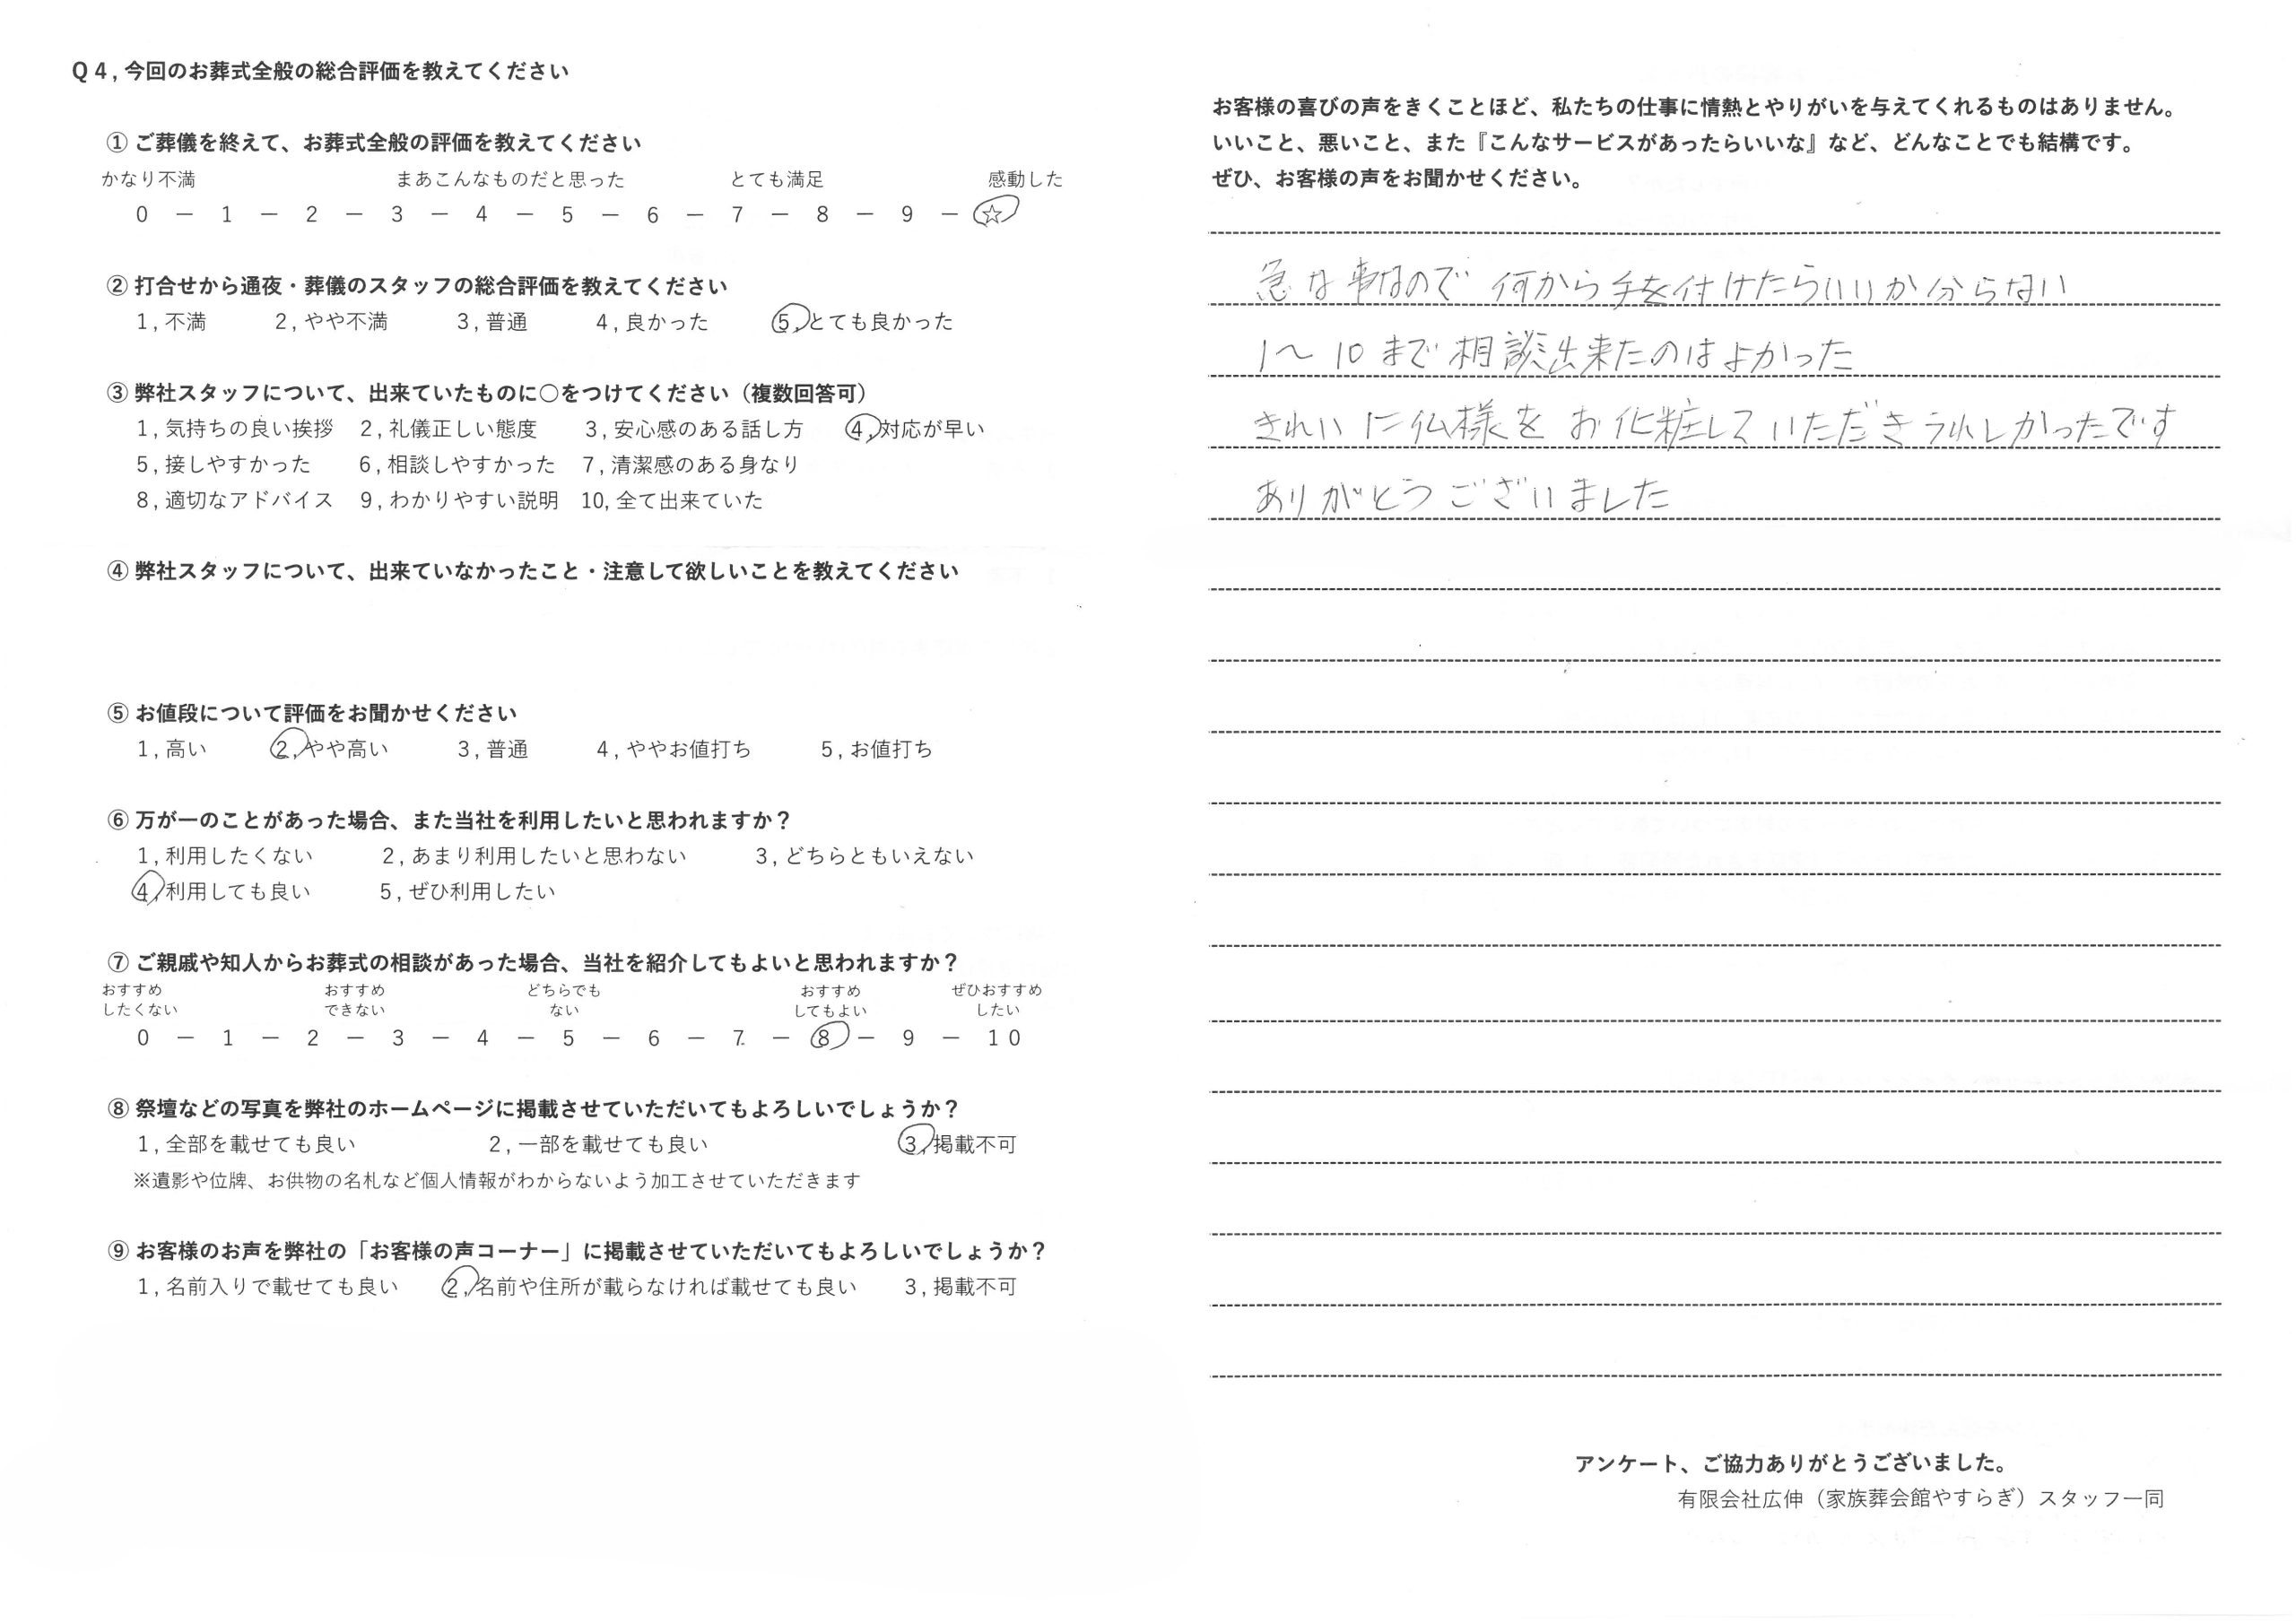 Q4,今回のお葬式全般の総合評価を教えてください
① ご葬儀を終えて、お葬式全般の評価を教えてください
かなり不満 まあこんなものだと思った とても満足 感動した
0 − 1 − 2 − 3 − 4 − 5 − 6 − 7 − 8 − 9 − ☆
② 打合せから通夜・葬儀のスタッフの総合評価を教えてください
1,不満 2,やや不満 3,普通 4,良かった 5,とても良かった
③ 弊社スタッフについて、出来ていたものに○をつけてください（複数回答可）
1,気持ちの良い挨拶 2,礼儀正しい態度 3,安心感のある話し方 4,対応が早い
5,接しやすかった 6,相談しやすかった 7,清潔感のある身なり
8,適切なアドバイス 9,わかりやすい説明 10,全て出来ていた
④ 弊社スタッフについて、出来ていなかったこと・注意して欲しいことを教えてください
⑤ お値段について評価をお聞かせください
1,高い 2,やや高い 3,普通 4,ややお値打ち 5,お値打ち
⑥ 万が一のことがあった場合、また当社を利用したいと思われますか？
1,利用したくない 2,あまり利用したいと思わない 3,どちらともいえない
4,利用しても良い 5,ぜひ利用したい
⑦ ご親戚や知人からお葬式の相談があった場合、当社を紹介してもよいと思われますか？
おすすめ おすすめ どちらでも おすすめ ぜひおすすめ
したくない できない ない してもよい したい
0 − 1 − 2 − 3 − 4 − 5 − 6 − 7 − 8 − 9 − 10
⑧ 祭壇などの写真を弊社のホームページに掲載させていただいてもよろしいでしょうか？
1,全部を載せても良い 2,一部を載せても良い 3,掲載不可
※遺影や位牌、お供物の名札など個人情報がわからないよう加工させていただきます
⑨ お客様のお声を弊社の「お客様の声コーナー」に掲載させていただいてもよろしいでしょうか？
1,名前入りで載せても良い 2,名前や住所が載らなければ載せても良い 3,掲載不可
お客様の喜びの声をきくことほど、私たちの仕事に情熱とやりがいを与えてくれるものはありません。
いいこと、悪いこと、また『こんなサービスがあったらいいな』など、どんなことでも結構です。
ぜひ、お客様の声をお聞かせください。
急な事なので 何から手を付けたらいいか分からない
1〜10まで相談出来たのはよかった
きれいに仏様をお化粧していただきうれしかったです
ありがとうございました
アンケート、ご協力ありがとうございました。
有限会社広伸（家族葬会館やすらぎ）スタッフ一同